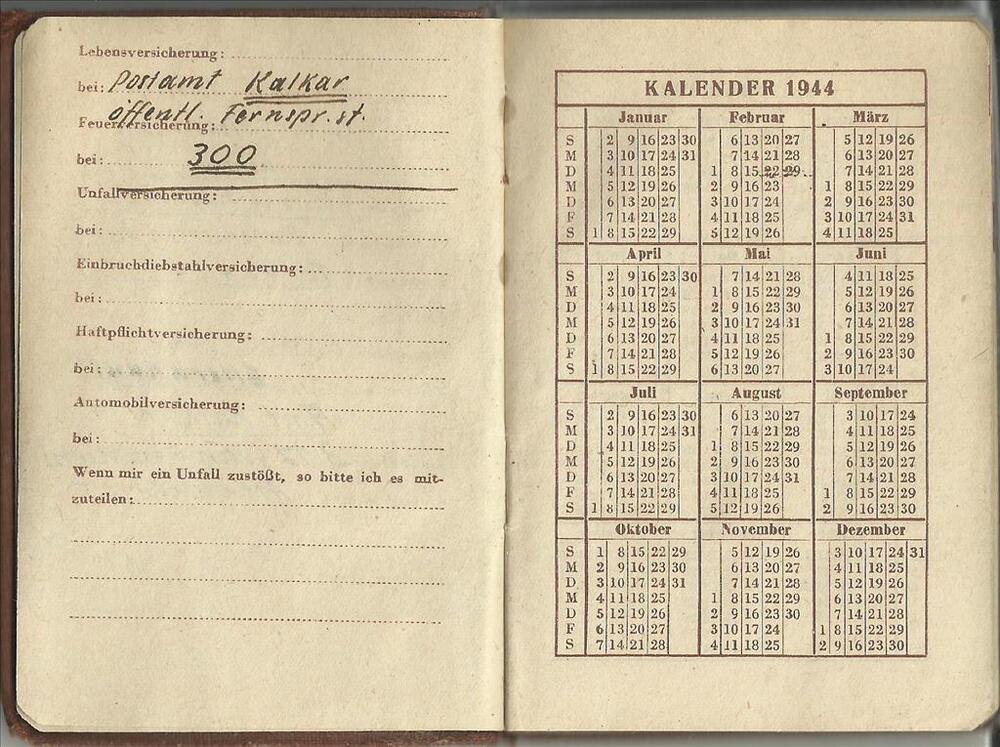 Lebensversicherung:
bei: Postamt Kalkar
öffentl. Fernspr. st.
Feuerversicherung:
bei: 300
Unfallversicherung:
bei:
Einbruchdiebstahlversicherung:
bei:
Haftpflichtversicherung:
bei:
Automobilversicherung:
bei:
Wenn mir ein Unfall zustößt, so bitte ich es mit-
zuteilen:
KALENDER 1944
Januar Februar März
S 2 9 16 23 30 6 13 20 27 5 12 19 26
M 3 10 17 24 31 7 14 21 28 6 13 20 27
D 4 11 18 25 1 8 15 22 29 7 14 21 28
M 5 12 19 26 2 9 16 23 1 8 15 22 29
D 6 13 20 27 3 10 17 24 2 9 16 23 30
F 7 14 21 28 4 11 18 25 3 10 17 24 31
S 1 8 15 22 29 5 12 19 26 4 11 18 25
April Mai Juni
S 2 9 16 23 30 7 14 21 28 4 11 18 25
M 3 10 17 24 1 8 15 22 29 5 12 19 26
D 4 11 18 25 2 9 16 23 30 6 13 20 27
M 5 12 19 26 3 10 17 24 31 7 14 21 28
D 6 13 20 27 4 11 18 25 1 8 15 22 29
F 7 14 21 28 5 12 19 26 2 9 16 23 30
S 1 8 15 22 29 6 13 20 27 3 10 17 24
Juli August September
S 2 9 16 23 30 6 13 20 27 3 10 17 24
M 3 10 17 24 31 7 14 21 28 4 11 18 25
D 4 11 18 25 1 8 15 22 29 5 12 19 26
M 5 12 19 26 2 9 16 23 30 6 13 20 27
D 6 13 20 27 3 10 17 24 31 7 14 21 28
F 7 14 21 28 4 11 18 25 1 8 15 22 29
S 1 8 15 22 29 5 12 19 26 2 9 16 23 30
Oktober November Dezember
S 1 8 15 22 29 5 12 19 26 3 10 17 24 31
M 2 9 16 23 30 6 13 20 27 4 11 18 25
D 3 10 17 24 31 7 14 21 28 5 12 19 26
M 4 11 18 25 1 8 15 22 29 6 13 20 27
D 5 12 19 26 2 9 16 23 30 7 14 21 28
F 6 13 20 27 3 10 17 24 1 8 15 22 29
S 7 14 21 28 4 11 18 25 2 9 16 23 30